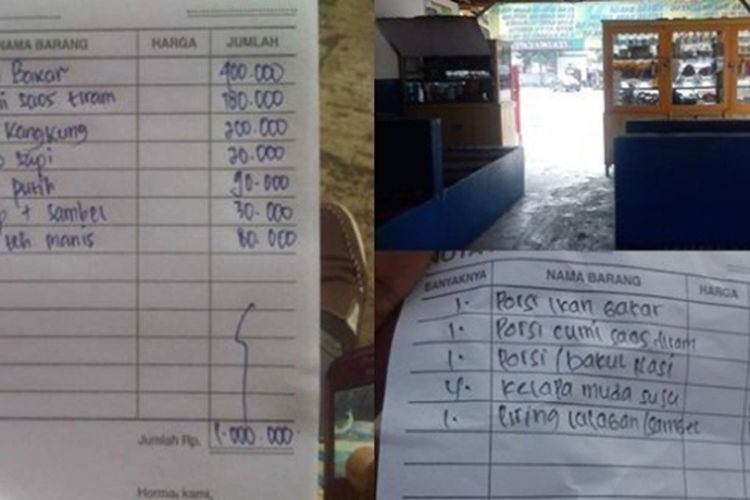 NAMA BARANG HARGA JUMLAH
Bakar 400.000
saos tiram 180.000
Kangkung 200.000
sapi 20.000
putih 90.000
+ sambel 30.000
teh manis 80.000
Jumlah Rp. 1.000.000
Hormat kami,
NOTA
BANYAKNYA NAMA BARANG HARGA
1. Porsi ikan bakar
1. Porsi cumi saos tiram
1. Porsi/bakul Nasi
4. Kelapa muda susu
1. Piring lalapan/sambel